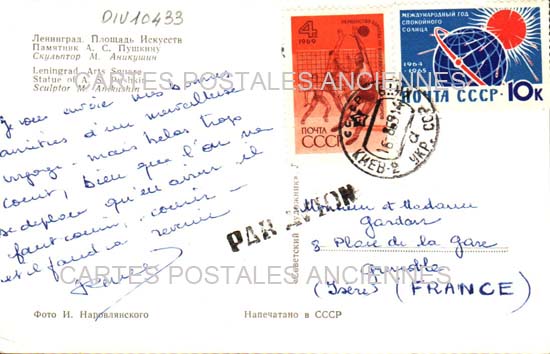 DIV10433
Ленинград. Площадь Искусств
Памятник А. С. Пушкину
Скульптор М. Аникушин
Leningrad. Arts Square
Statue of A. S. Pushkin
Sculptor M. Anikushin
CARTES POSTALES ANCIENNES
Je vous envoie mes bonnes
amitiés d'un merveilleux
voyage - mais hélas trop
court, bien que l'on ne
se déplace qu'en avion il
faut courir, courir -
et il faudra revenir
Фото И. Наровлянского
Напечатано в СССР
«Советский художник» 1969
4
1969
ПОЧТА
СССР
МЕЖДУНАРОДНЫЙ ГОД
СПОКОЙНОГО
СОЛНЦА
1964
1965
ПОЧТА СССР 10К
КИЕВ-2 УКР. ССР
PAR AVION
Monsieur et Madame
Gardon
8 Place de la Gare
Grenoble
(Isère) (FRANCE)
CARTES POSTALES ANCIENNES